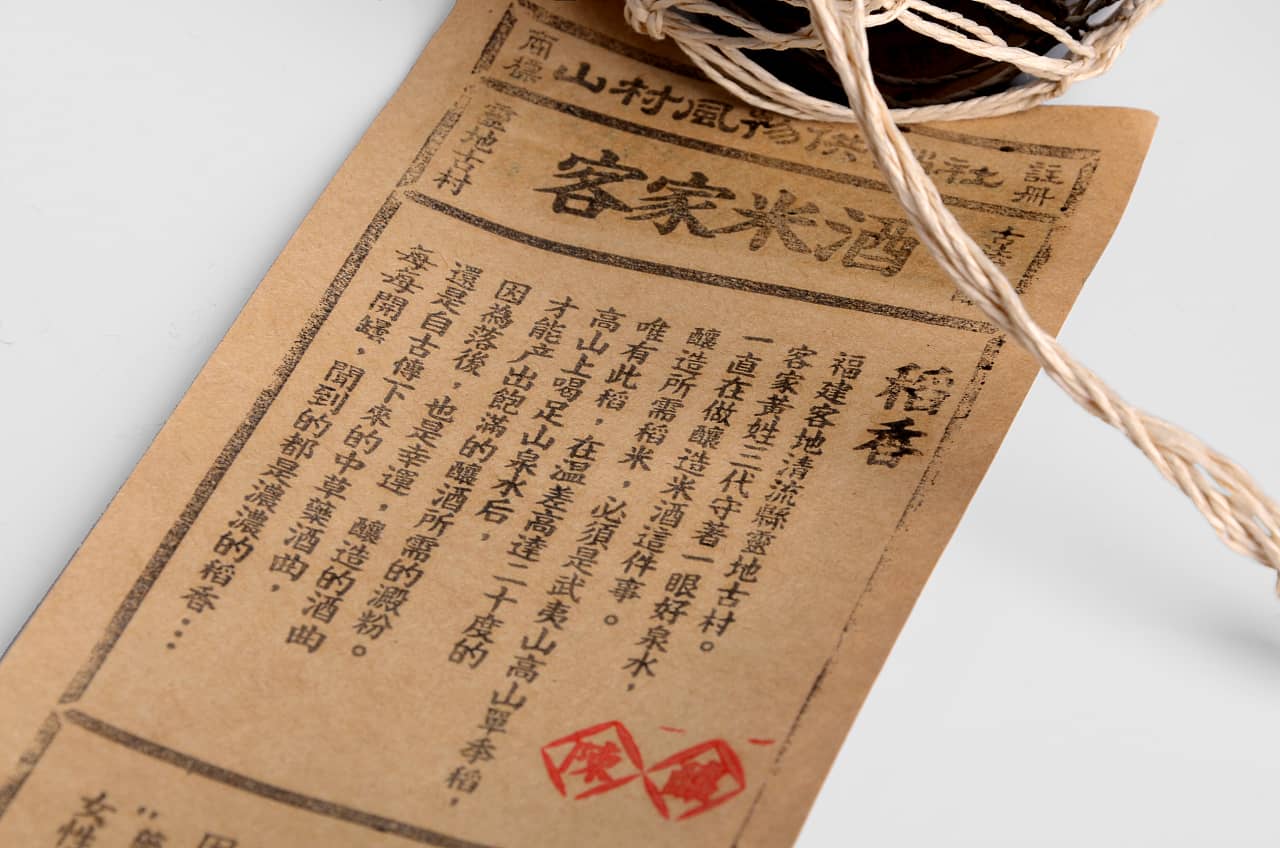 商標
山村風物供銷社
註冊
靈地古村
客家米酒
稻香
福建客地清流縣靈地古村。
客家黃姓三代守著一眼好泉水，
一直在做釀造米酒這件事。
釀造所需稻米，必須是武夷山高山單季稻，
唯有此稻，在温差高達二十度的
高山上喝足山泉水后，
才能产出飽滿的釀酒所需的澱粉。
因為落後，也是幸運，釀造的酒曲
還是自古傳下來的中草藥酒曲，
每每開罈，聞到的都是濃濃的稻香…
因
女性